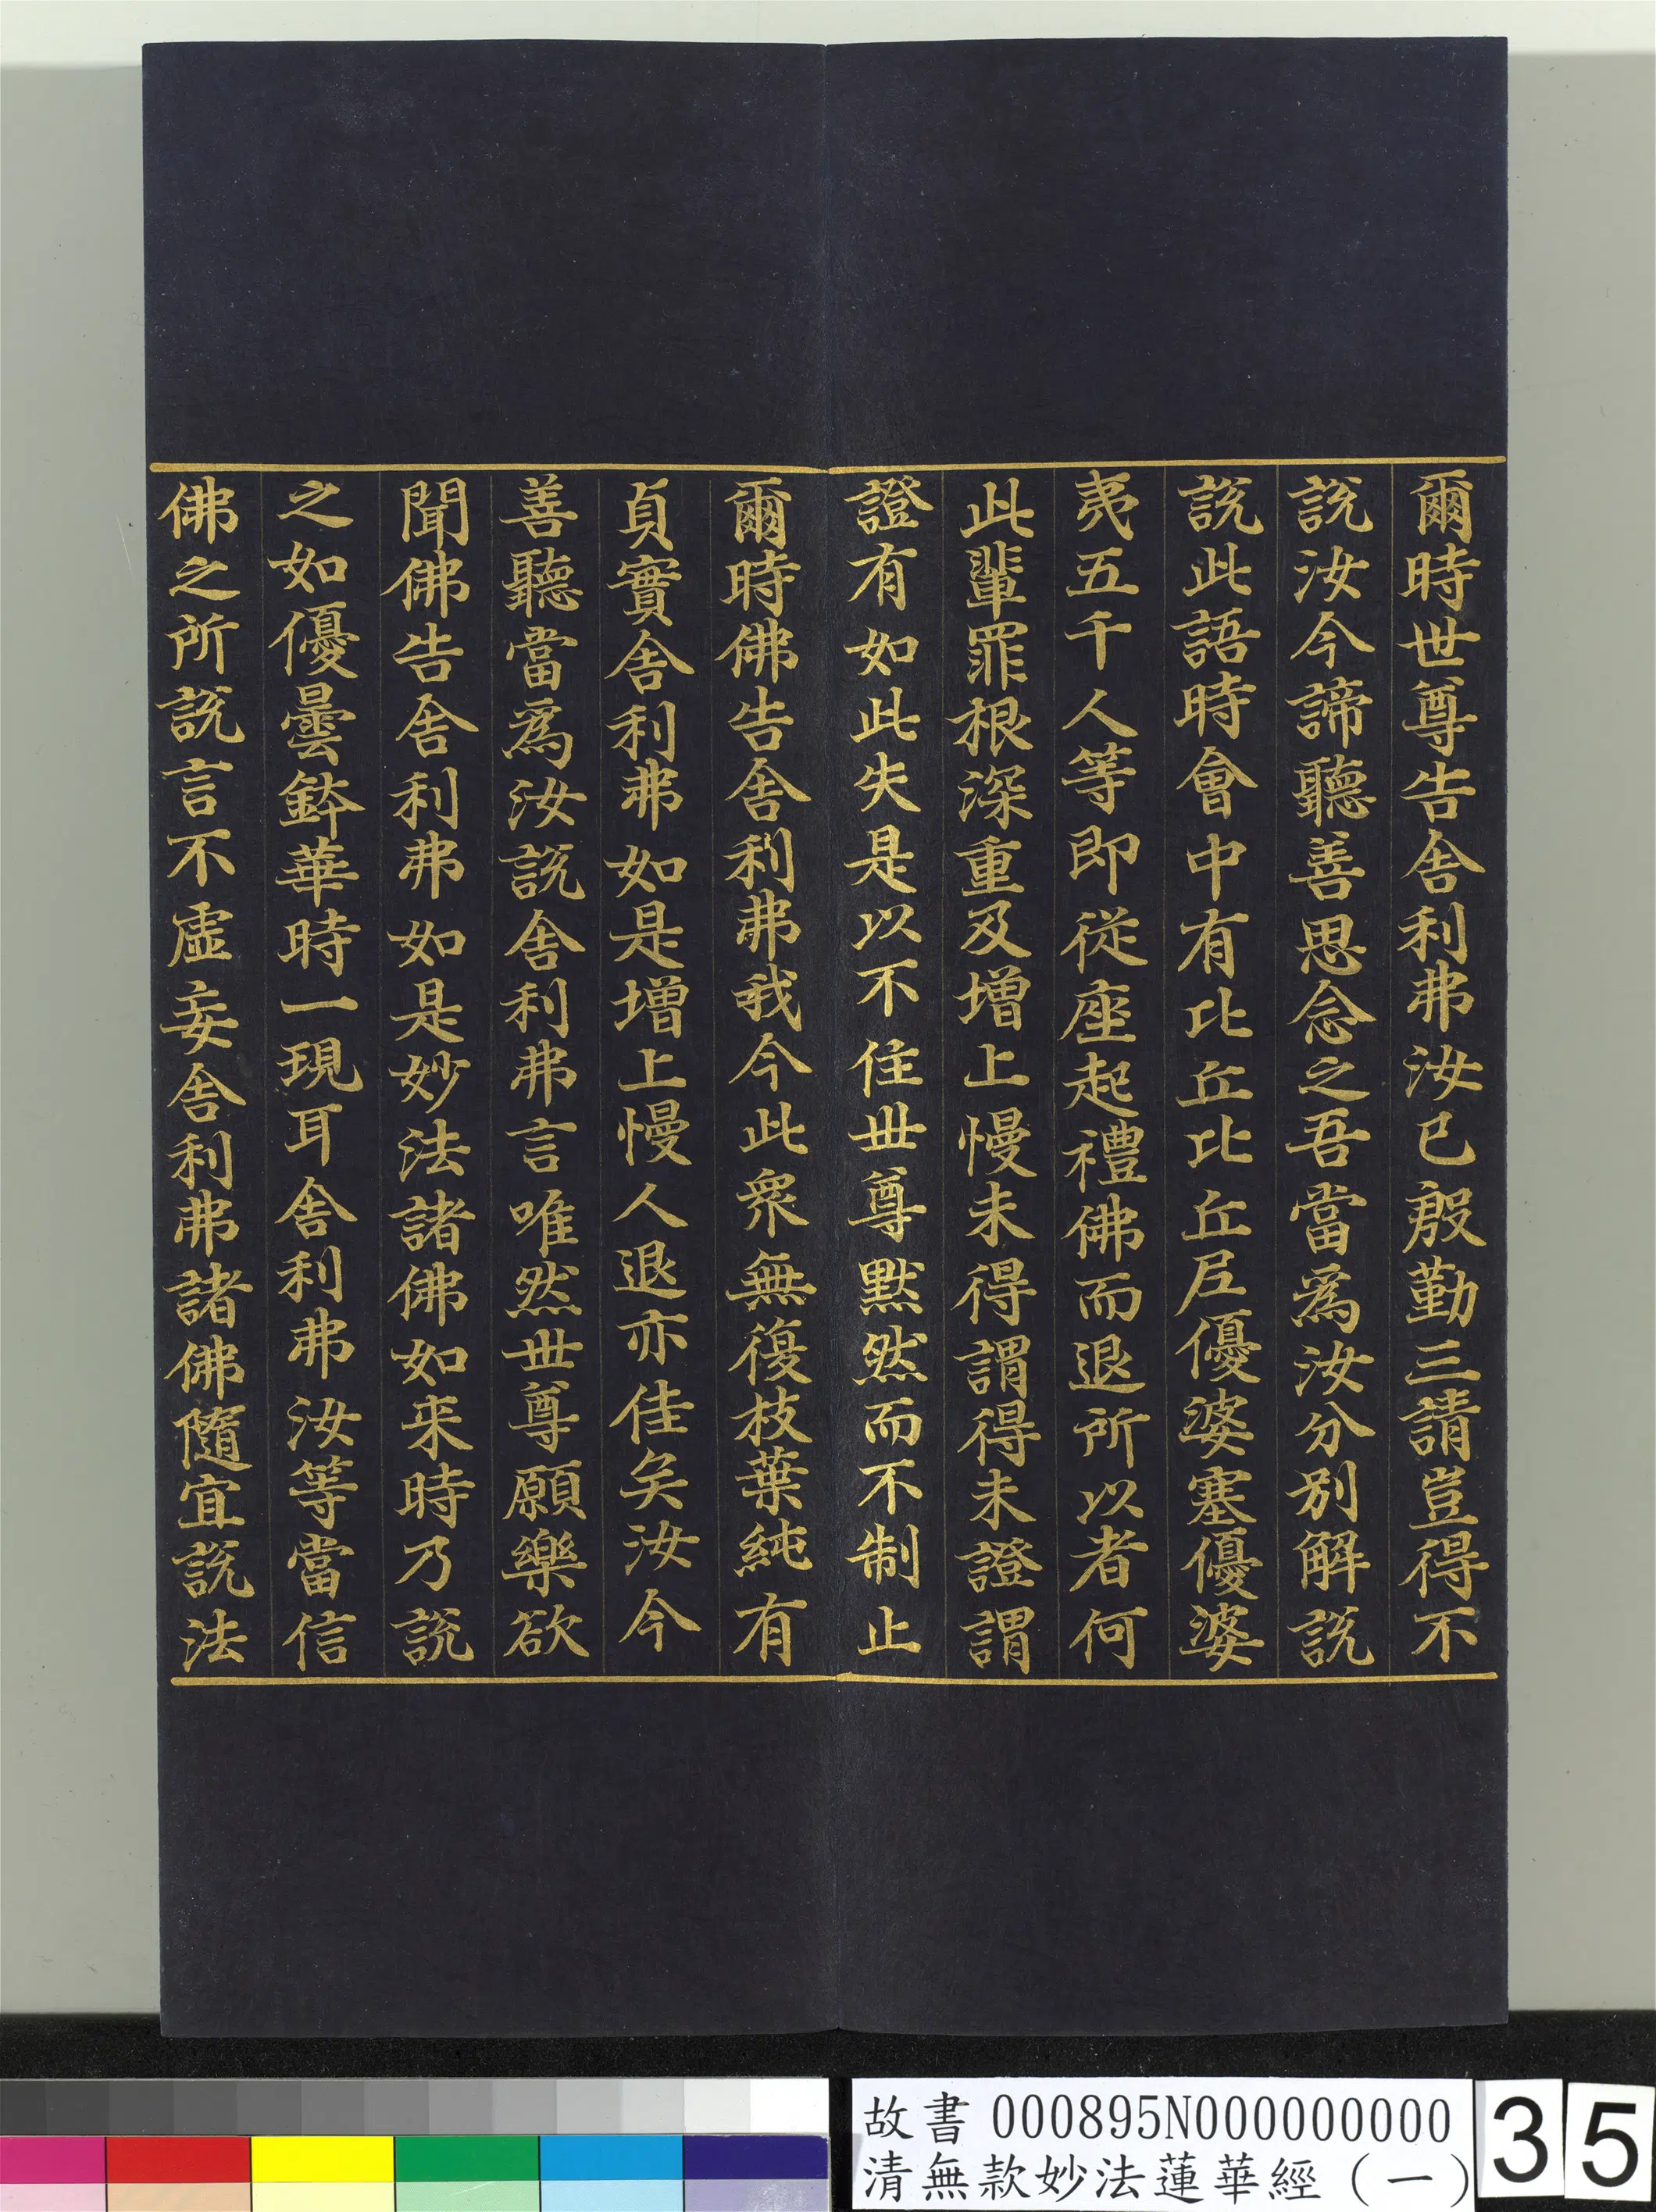 爾時世尊告舍利弗汝已殷勤三請豈得不
說汝今諦聽善思念之吾當爲汝分別解說
說此語時會中有比丘比丘尼優婆塞優婆
夷五千人等即從座起禮佛而退所以者何
此輩罪根深重及增上慢未得謂得未證謂
證有如此失是以不住世尊默然而不制止
爾時佛告舍利弗我今此衆無復枝葉純有
貞實舍利弗如是增上慢人退亦佳矣汝今
善聽當爲汝說舍利弗言唯然世尊願樂欲
聞佛告舍利弗如是妙法諸佛如来時乃說
之如優曇鉢華時一現耳舍利弗汝等當信
佛之所說言不虛妄舍利弗諸佛隨宜說法
故書 000895N000000000
清無款妙法蓮華經（一）
35